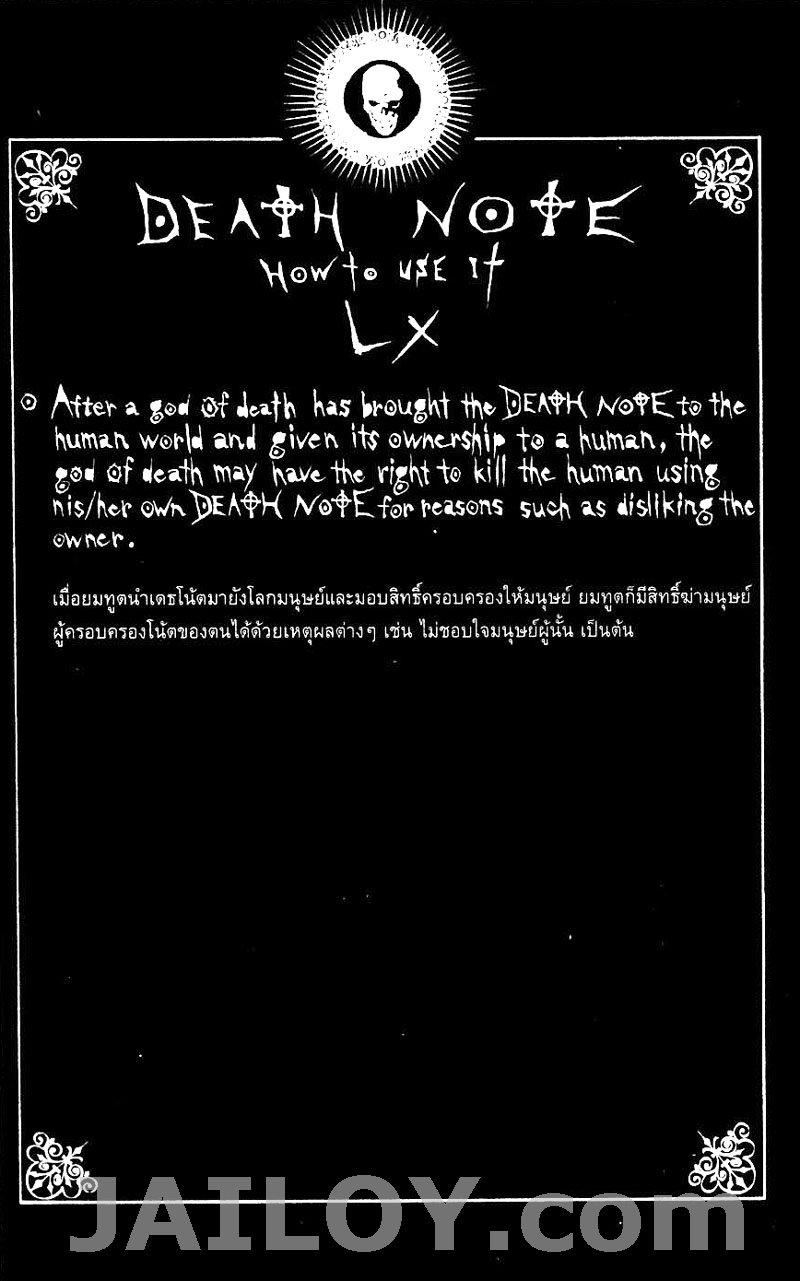 DEATH NOTE
HOW to USE It
LX
After a god of death has brought the DEATH NOTE to the
human world and given its ownership to a human, the
god of death may have the right to kill the human using
his/her own DEATH NOTE for reasons such as disliking the
owner.
เมื่อยมทูตนำเดธโน้ตมายังโลกมนุษย์และมอบสิทธิ์ครอบครองให้มนุษย์ ยมทูตก็มีสิทธิ์ฆ่ามนุษย์
ผู้ครอบครองโน้ตของตนได้ด้วยเหตุผลต่างๆ เช่น ไม่ชอบใจมนุษย์ผู้นั้น เป็นต้น
JAILOY.com